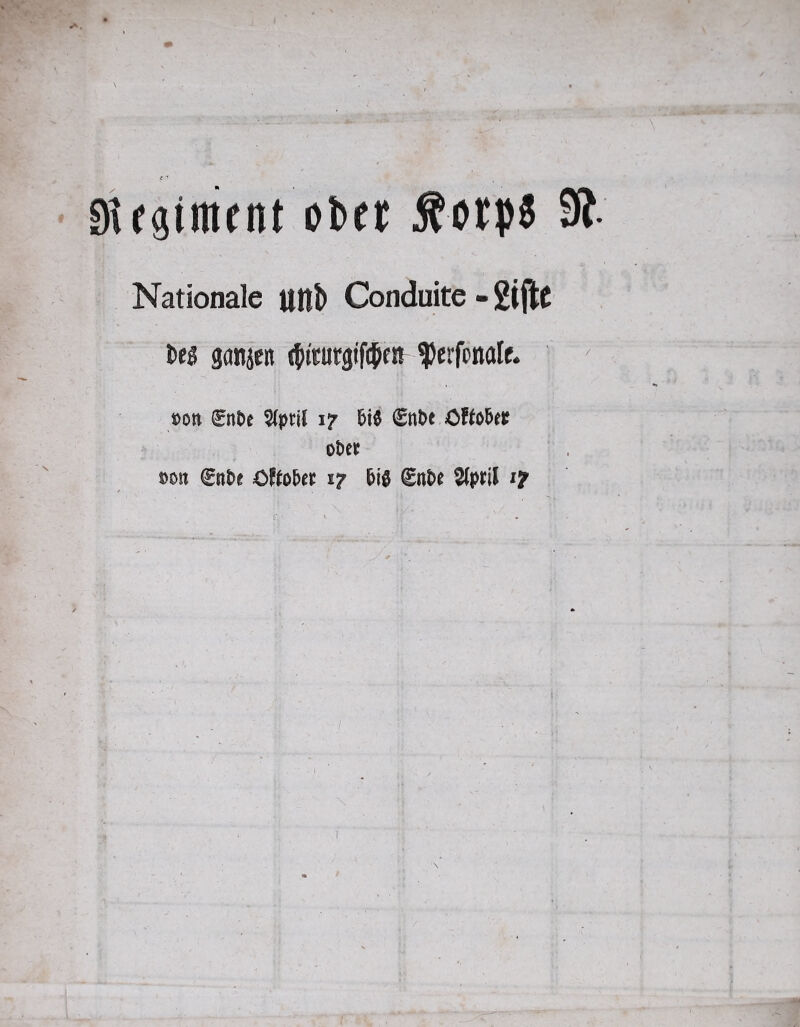 Regiment oder Korps N.
Nationale und Conduite-Liste
des ganzen chirurgischen Personale.
von Ende April 17 bis Ende Oktober
oder
von Ende Oktober 17 bis Ende April 17